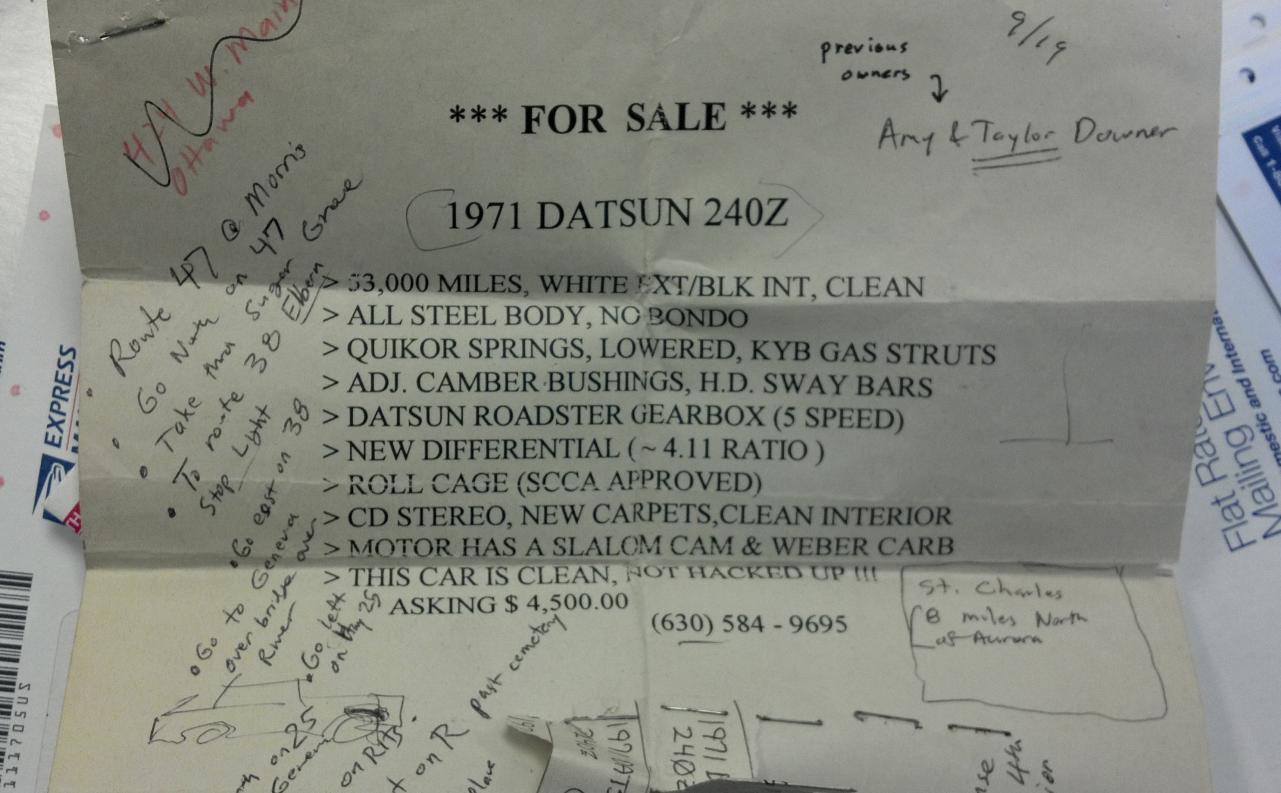 9/19
previous
owners
Amy & Taylor Downer
424 W. Main
Ottawa
*** FOR SALE ***
1971 DATSUN 240Z
> 53,000 MILES, WHITE EXT/BLK INT, CLEAN
> ALL STEEL BODY, NO BONDO
> QUIKOR SPRINGS, LOWERED, KYB GAS STRUTS
> ADJ. CAMBER BUSHINGS, H.D. SWAY BARS
> DATSUN ROADSTER GEARBOX (5 SPEED)
> NEW DIFFERENTIAL ( ~ 4.11 RATIO )
> ROLL CAGE (SCCA APPROVED)
> CD STEREO, NEW CARPETS,CLEAN INTERIOR
> MOTOR HAS A SLALOM CAM & WEBER CARB
> THIS CAR IS CLEAN, NOT HACKED UP !!!
ASKING $ 4,500.00
(630) 584 - 9695
St. Charles
8 miles North
of Aurora
• Route 47 @ Morris
• Go North on 47
• Take thru Sugar Grove
• To route 38 Elburn
Stop Light
• Go east on 38
• Go to Geneva
over bridge over
River
• Go left
on Hwy 25
on 25
Geneva
on R
Past cemetery
1971
240Z
EXPRESS
Flat Rate
Mailing
11170SUS